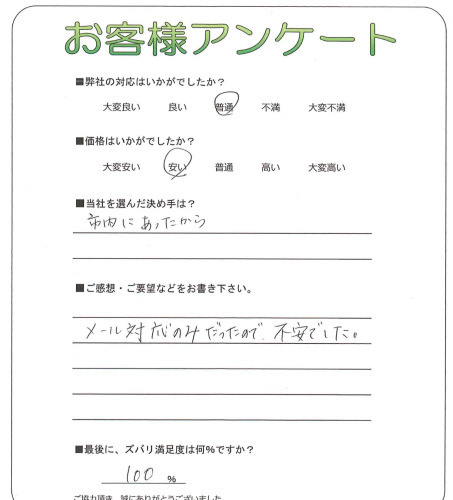 お客様アンケート
■弊社の対応はいかがでしたか？
大変良い 良い 普通 不満 大変不満
■価格はいかがでしたか？
大変安い 安い 普通 高い 大変高い
■当社を選んだ決め手は？
市内にあったから
■ご感想・ご要望などをお書き下さい。
メール対応のみだったので、不安でした。
■最後に、ズバリ満足度は何％ですか？
100 ％
ご協力頂き、誠にありがとうございました